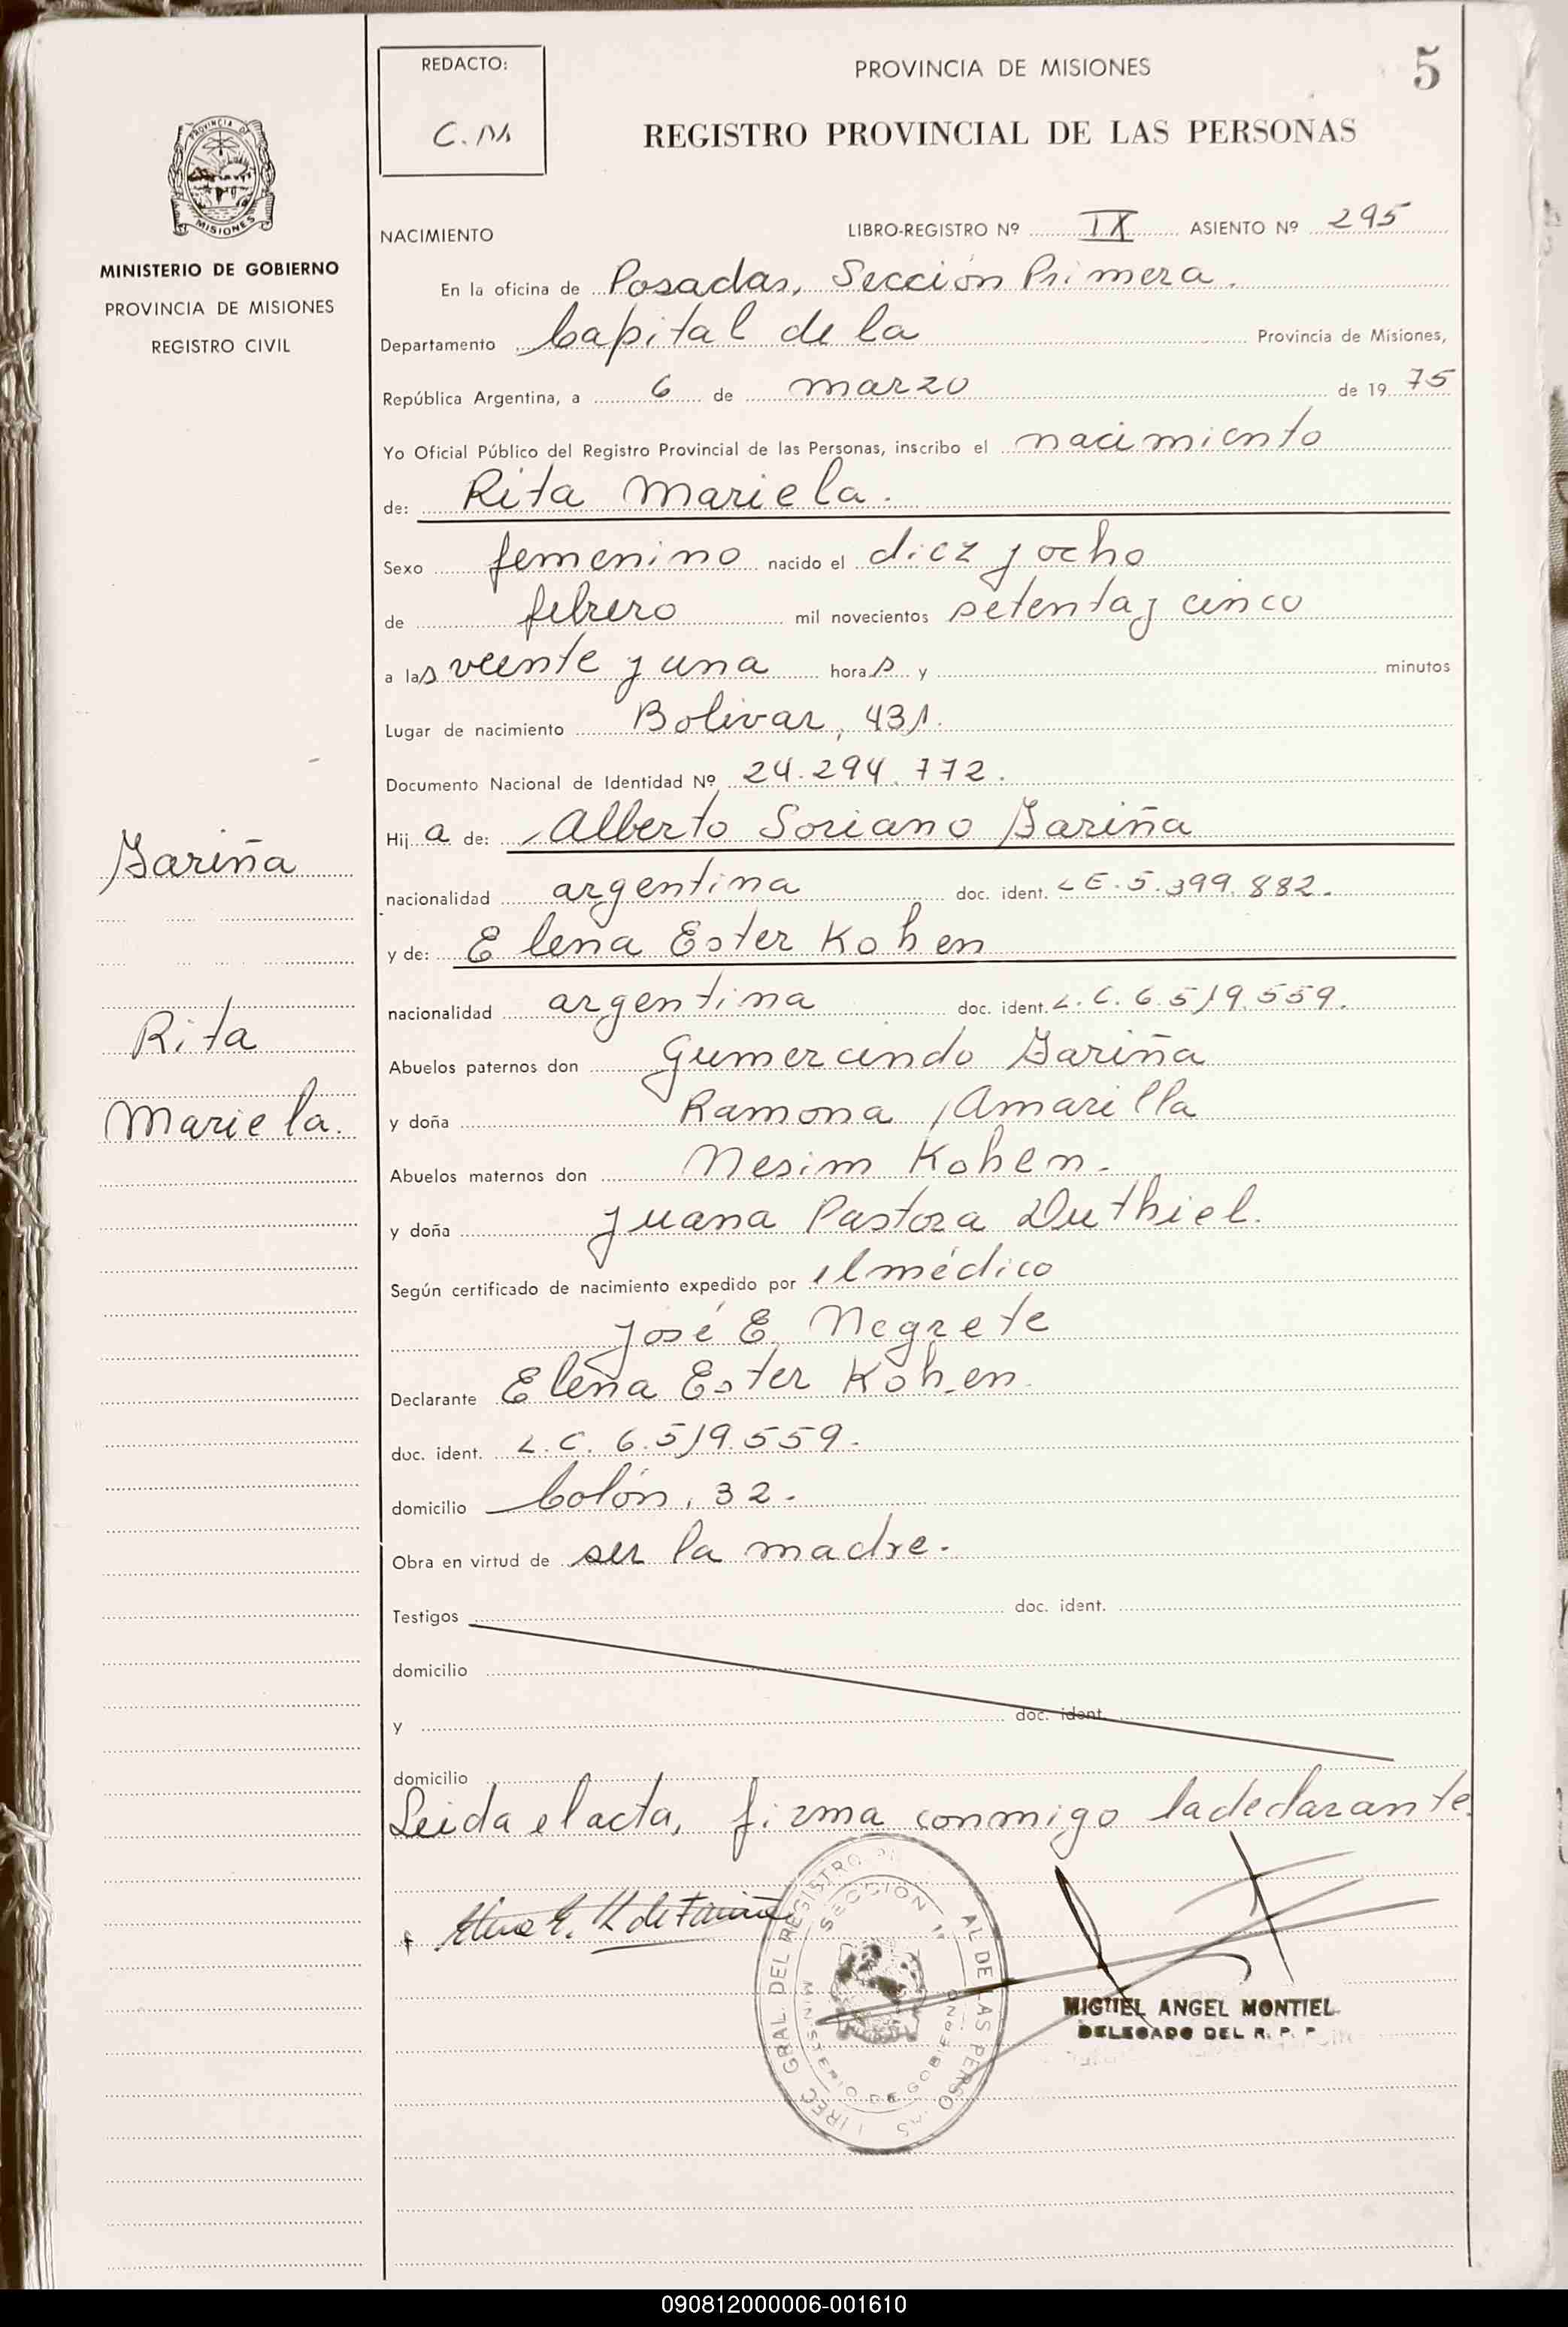 REDACTO:
C.M
PROVINCIA DE MISIONES
5
REGISTRO PROVINCIAL DE LAS PERSONAS
PROVINCIA DE
MISIONES
MINISTERIO DE GOBIERNO
PROVINCIA DE MISIONES
REGISTRO CIVIL
NACIMIENTO
LIBRO-REGISTRO Nº IX ASIENTO Nº 295
En la oficina de Posadas, Sección Primera.
Departamento Capital de la Provincia de Misiones,
República Argentina, a 6 de marzo de 1975
Yo Oficial Público del Registro Provincial de las Personas, inscribo el nacimiento
de: Rita Mariela.
Sexo femenino nacido el diez y ocho
de febrero mil novecientos setenta y cinco
a las veinte y una horas y minutos
Lugar de nacimiento Bolivar, 431.
Documento Nacional de Identidad Nº 24.294.772.
Hija de: Alberto Soriano Fariña
nacionalidad argentina doc. ident. LE.5.399.882.
y de: Elena Ester Kohen
nacionalidad argentina doc. ident. L.C.6.519.559.
Abuelos paternos don Gumercindo Fariña
y doña Ramona Amarilla
Abuelos maternos don Nesim Kohen.
y doña Juana Pastora Duthiel.
Según certificado de nacimiento expedido por el médico
José E. Negrete
Declarante Elena Ester Kohen
doc. ident. L.C. 6.519.559.
domicilio Colón, 32.
Obra en virtud de ser la madre.
Testigos doc. ident.
domicilio
y doc. ident.
domicilio
Leida el acta, firma conmigo la declarante.
Fariña
Rita
Mariela.
Elena E. K de Fariña
SECCION
MINISTERIO DE GOBIERNO
MIGUEL ANGEL MONTIEL
DELEGADO DEL R. P. P.
090812000006-001610